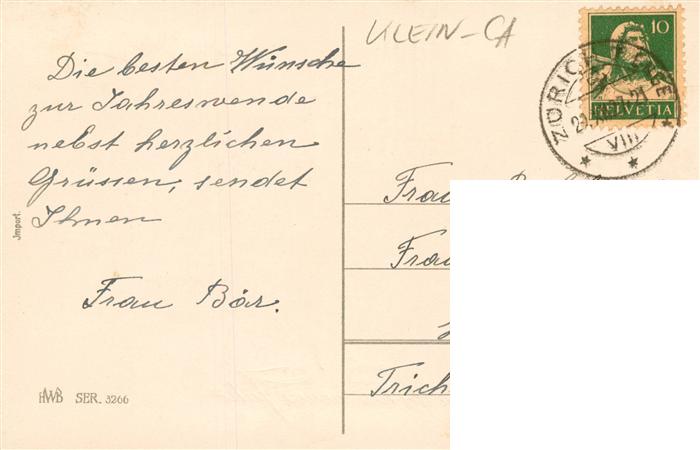 KLEIN-CA
Die besten Wünsche
zur Jahreswende
nebst herzlichen
Grüssen, sendet
Ihnen
Frau Bär.
Jmport.
HWB SER. 3266
10
HELVETIA
ZÜRICH
VIII
Frau
Frau
Trich